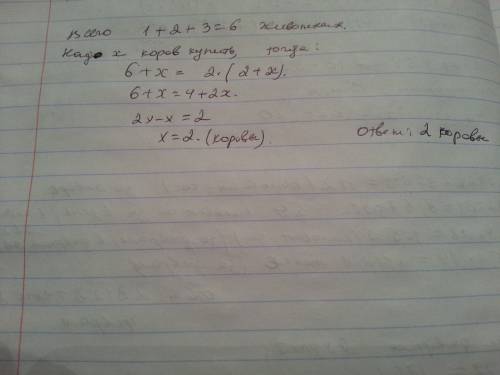 всего 1+2+3=6 животных.
Надо x коров купить, тогда:
6+x = 2·(2+x).
6+x=4+2x.
2x-x=2
x=2. (коровы).
Ответ: 2 коровы